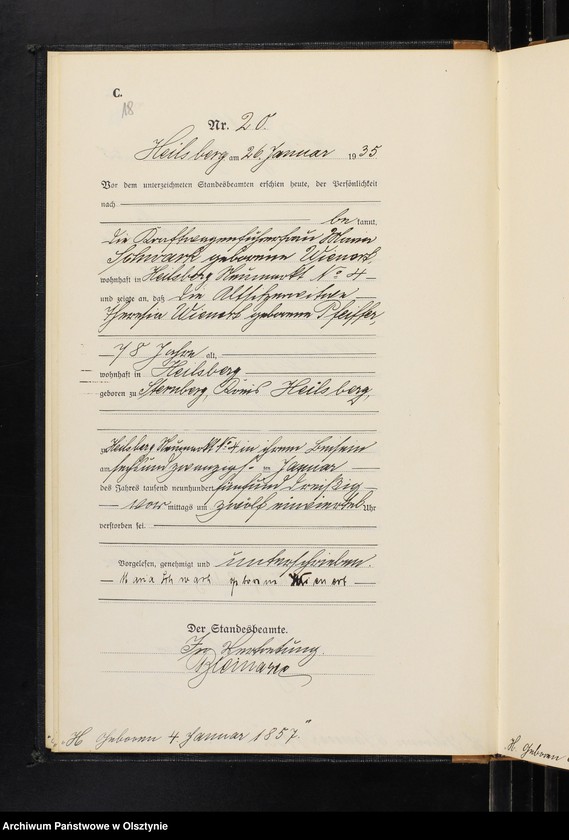 C.
18
Nr. 20.
Heilsberg am 26. Januar 1935
Vor dem unterzeichneten Standesbeamten erschien heute, der Persönlichkeit
nach
bekannt,
die Kraftwagenführerfrau Maria
Schwark geborene Wienert
wohnhaft in Heilsberg Neumarkt No 4
und zeigte an, daß die Altsitzerwitwe
Theresia Wienert geborene Pfeiffer,
78 Jahre alt,
wohnhaft in Heilsberg
geboren zu Sternberg, Kreis Heilsberg,
zu Heilsberg Neumarkt No 4 in ihrem Beisein
am sechsundzwanzigsten Januar
des Jahres tausend neunhundert fünfund dreißig
vormittags um zwölf einviertel Uhr
verstorben sei.
Vorgelesen, genehmigt und unterschrieben.
Maria Schwark geborene Wienert
Der Standesbeamte.
In Vertretung.
H. Geboren 4 Januar 1857."
H. Geboren
Archiwum Państwowe w Olsztynie